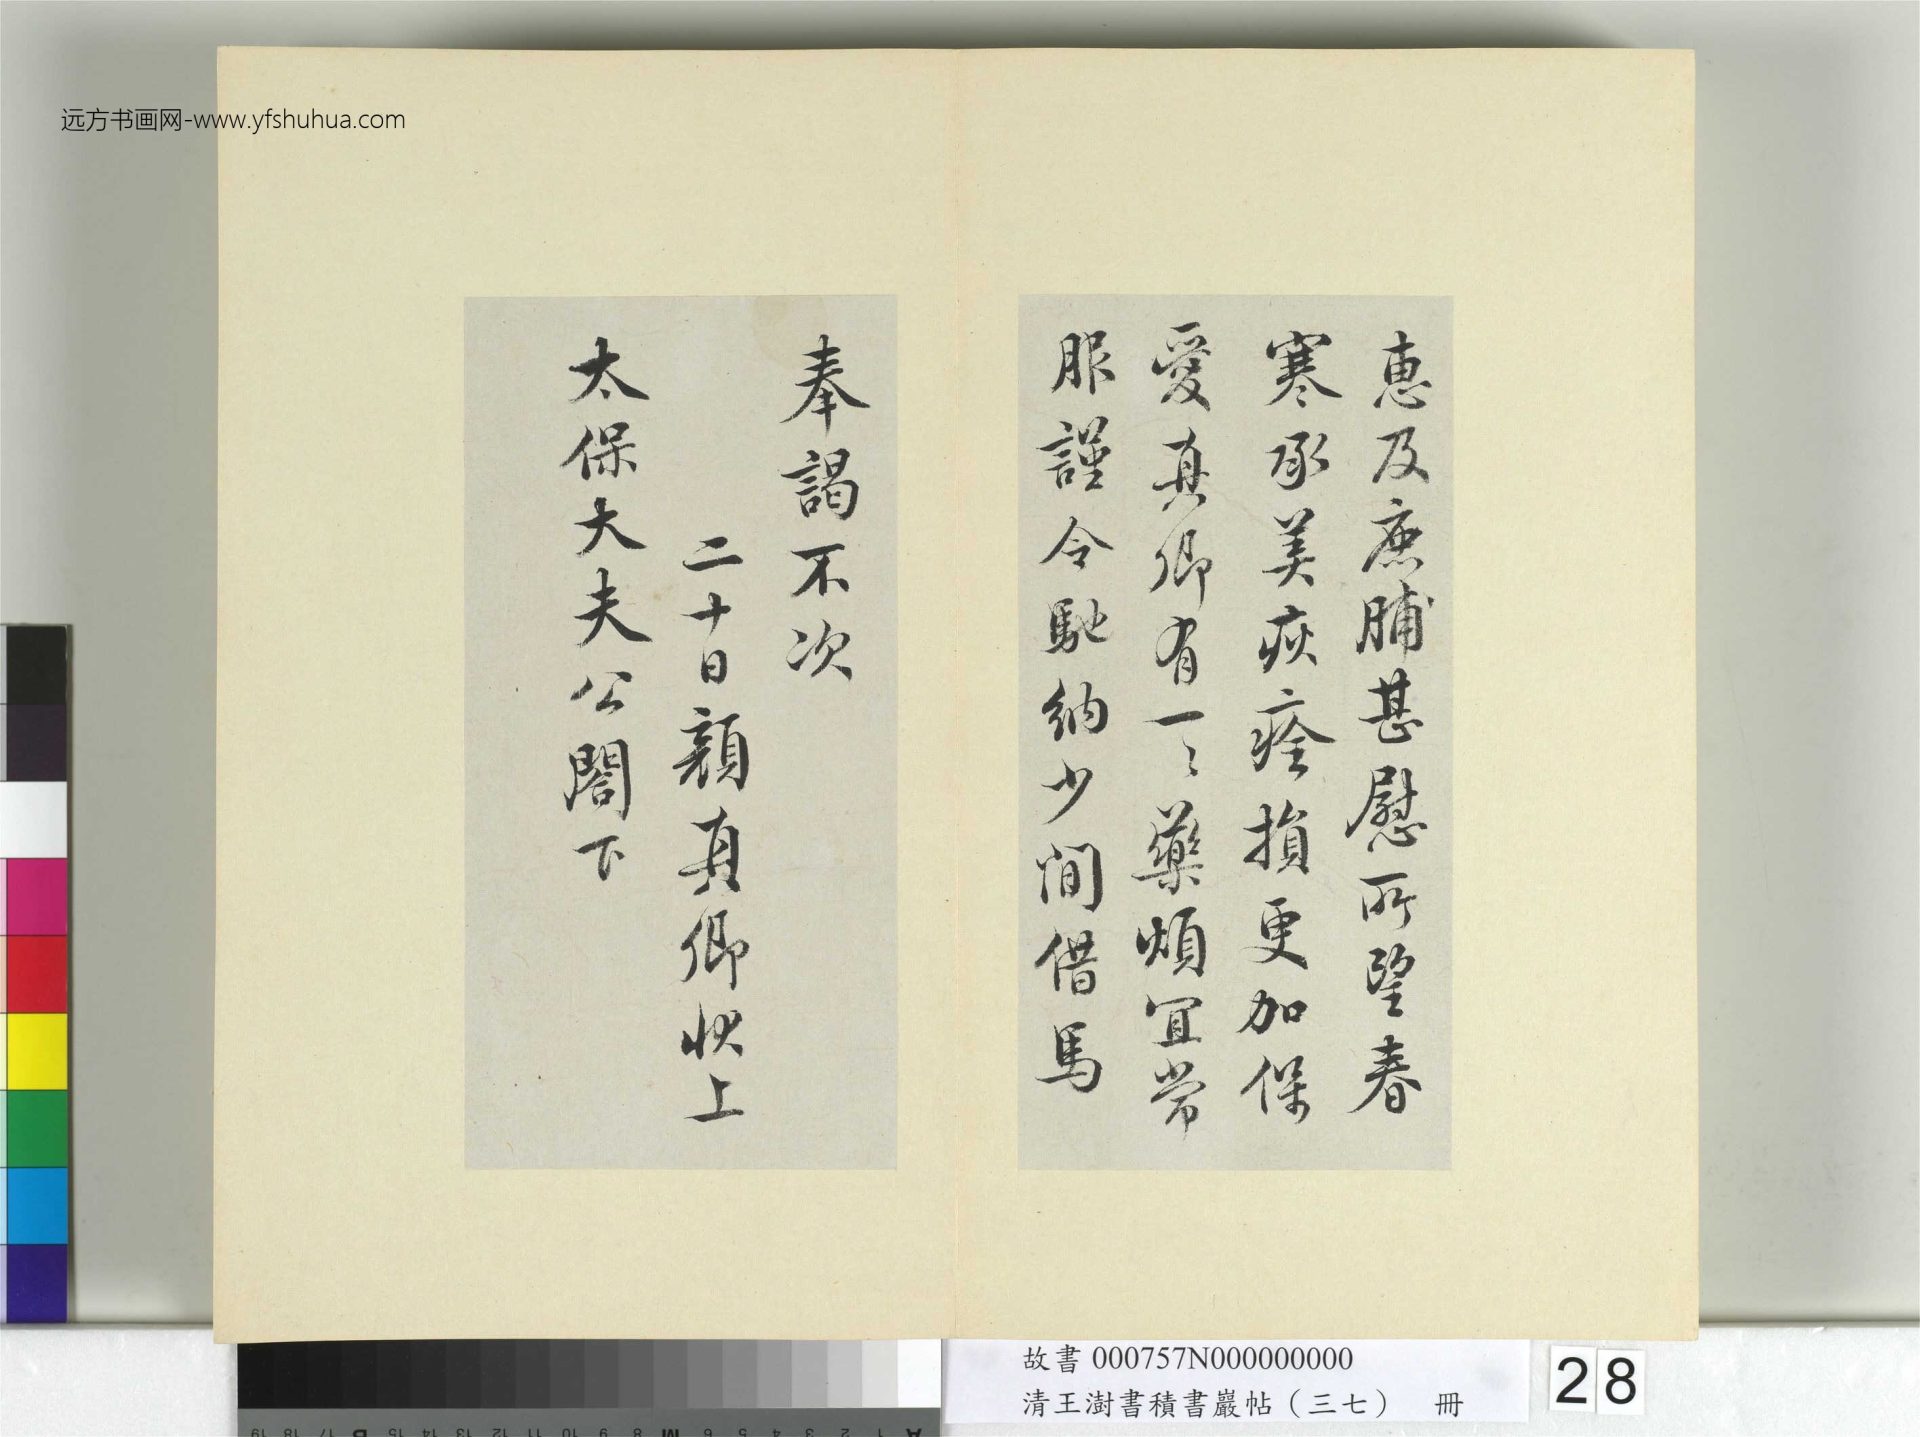 远方书画网-www.yfshuhua.com
惠及鹿脯甚慰所望春
寒承美疾痊損更加保
愛真卿有一〻藥煩宜常
服謹令馳納少間借馬
奉謁不次
二十日顏真卿狀上
太保大夫公閤下
故書 000757N000000000
清王澍書積書巖帖（三七） 冊
28